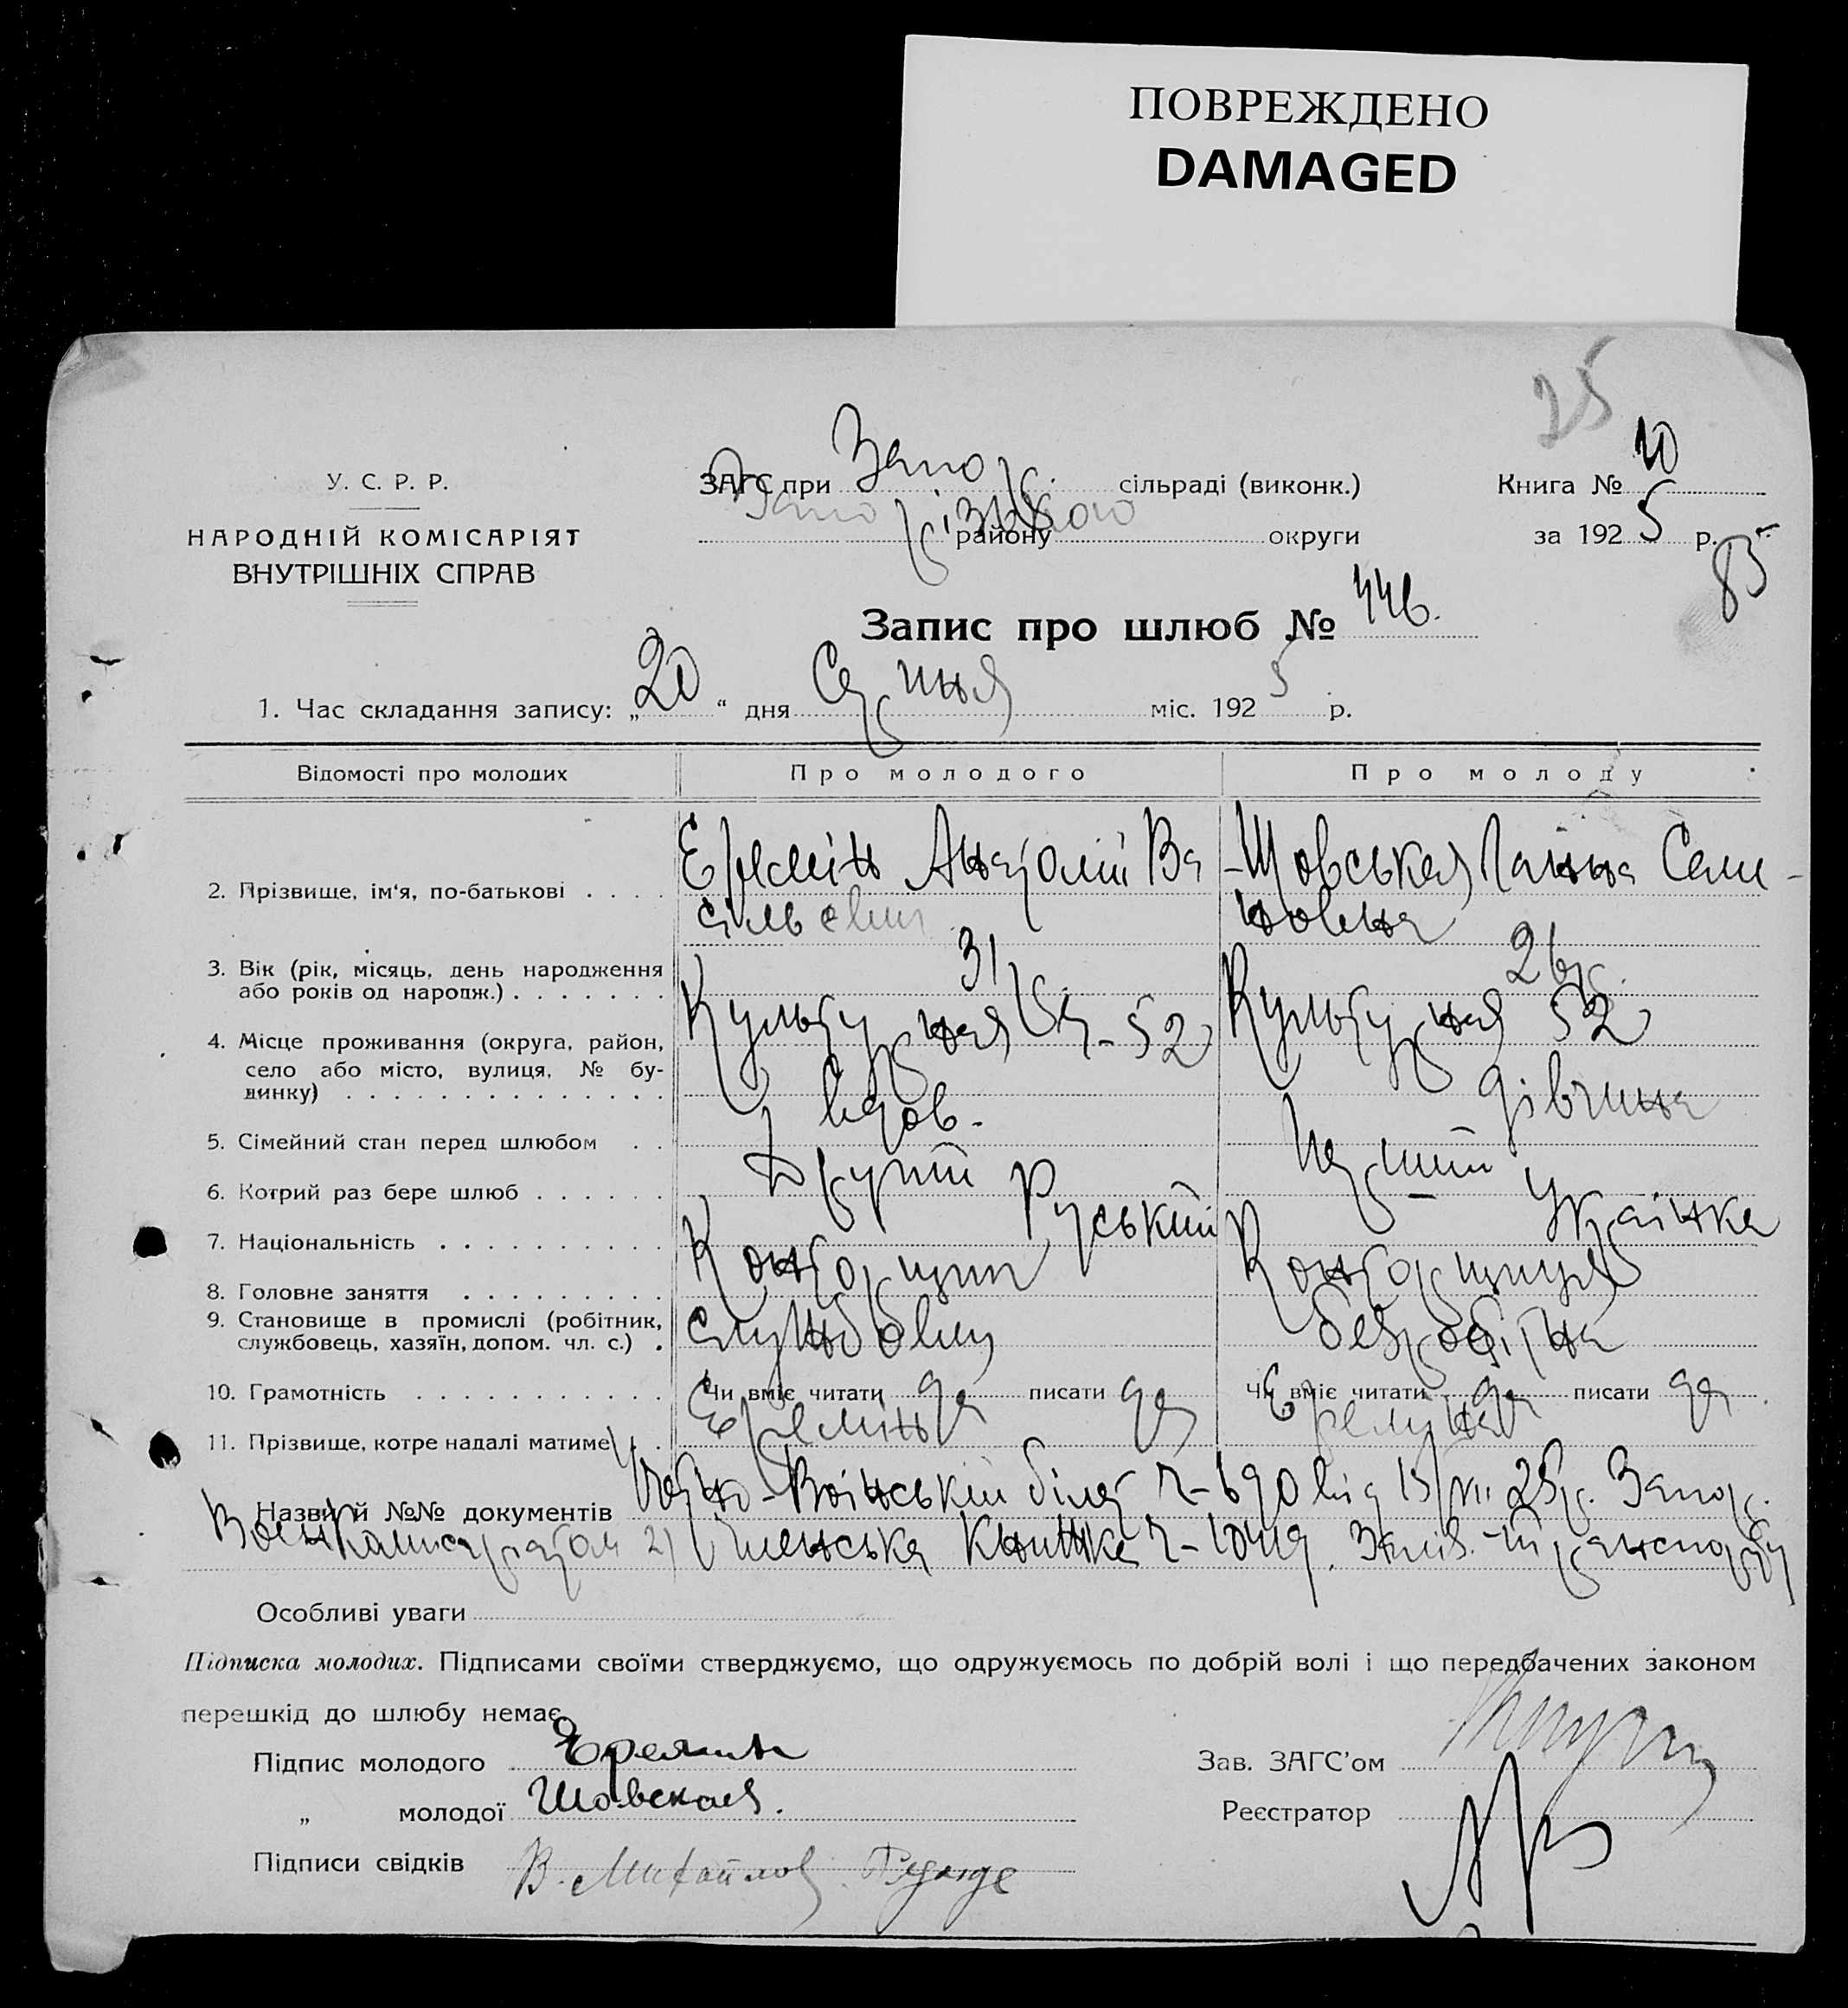 ПОВРЕЖДЕНО
DAMAGED
25
У. С. Р. Р.
НАРОДНІЙ КОМІСАРІЯТ
ВНУТРІШНІХ СПРАВ
ЗАГС при Запор. сільраді (виконк.)
району округи
Книга № 10
за 1925 р.
85
Запис про шлюб № 446.
1. Час складання запису: „20“ дня Серпня міс. 1925 р.
Відомості про молодих Про молодого Про молоду
2. Прізвище, ім'я, по-батькові Еремін Анатолій Ва Шовськая Ганна Семе-
сільевич новна
3. Вік (рік, місяць, день народження 31 р. 26 р.
або років од народж.)
4. Місце проживання (округа, район, Культурная 52 Культурная 52
село або місто, вулиця, № бу-
динку)
5. Сімейний стан перед шлюбом вдов. дівчина
6. Котрий раз бере шлюб Другий Перший
7. Національність Руський Українка
8. Головне заняття Конторщик Конторщиця
9. Становище в промислі (робітник, службовець безробітна
службовець, хазяїн, допом. чл. с.)
10. Грамотність Чи вміє читати да писати да Чи вміє читати да писати да
11. Прізвище, котре надалі матиме Еремін Еремина
Назви й №№ документів Воінський білет Ч-690 від 15/VII 25 р. Запор.
Военкомисаріатом 2) Членська Книжка Ч- Транспорту
Особливі уваги
Підписка молодих. Підписами своїми стверджуємо, що одружуємось по добрій волі і що передбачених законом
перешкід до шлюбу немає
Підпис молодого Еремин Зав. ЗАГС'ом
„ молодої Шовская. Реєстратор
Підписи свідків В. Михайлов